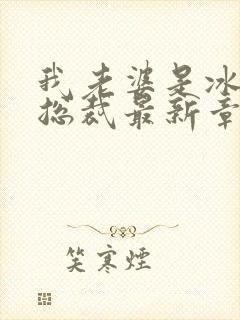 我老婆是冰
总裁最新章
笑寒煙